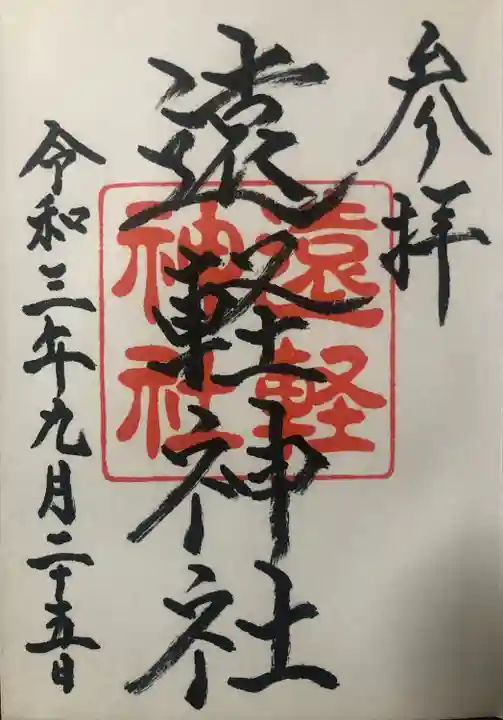 参拝
遠軽神社
遠軽
神社
令和三年九月二十五日